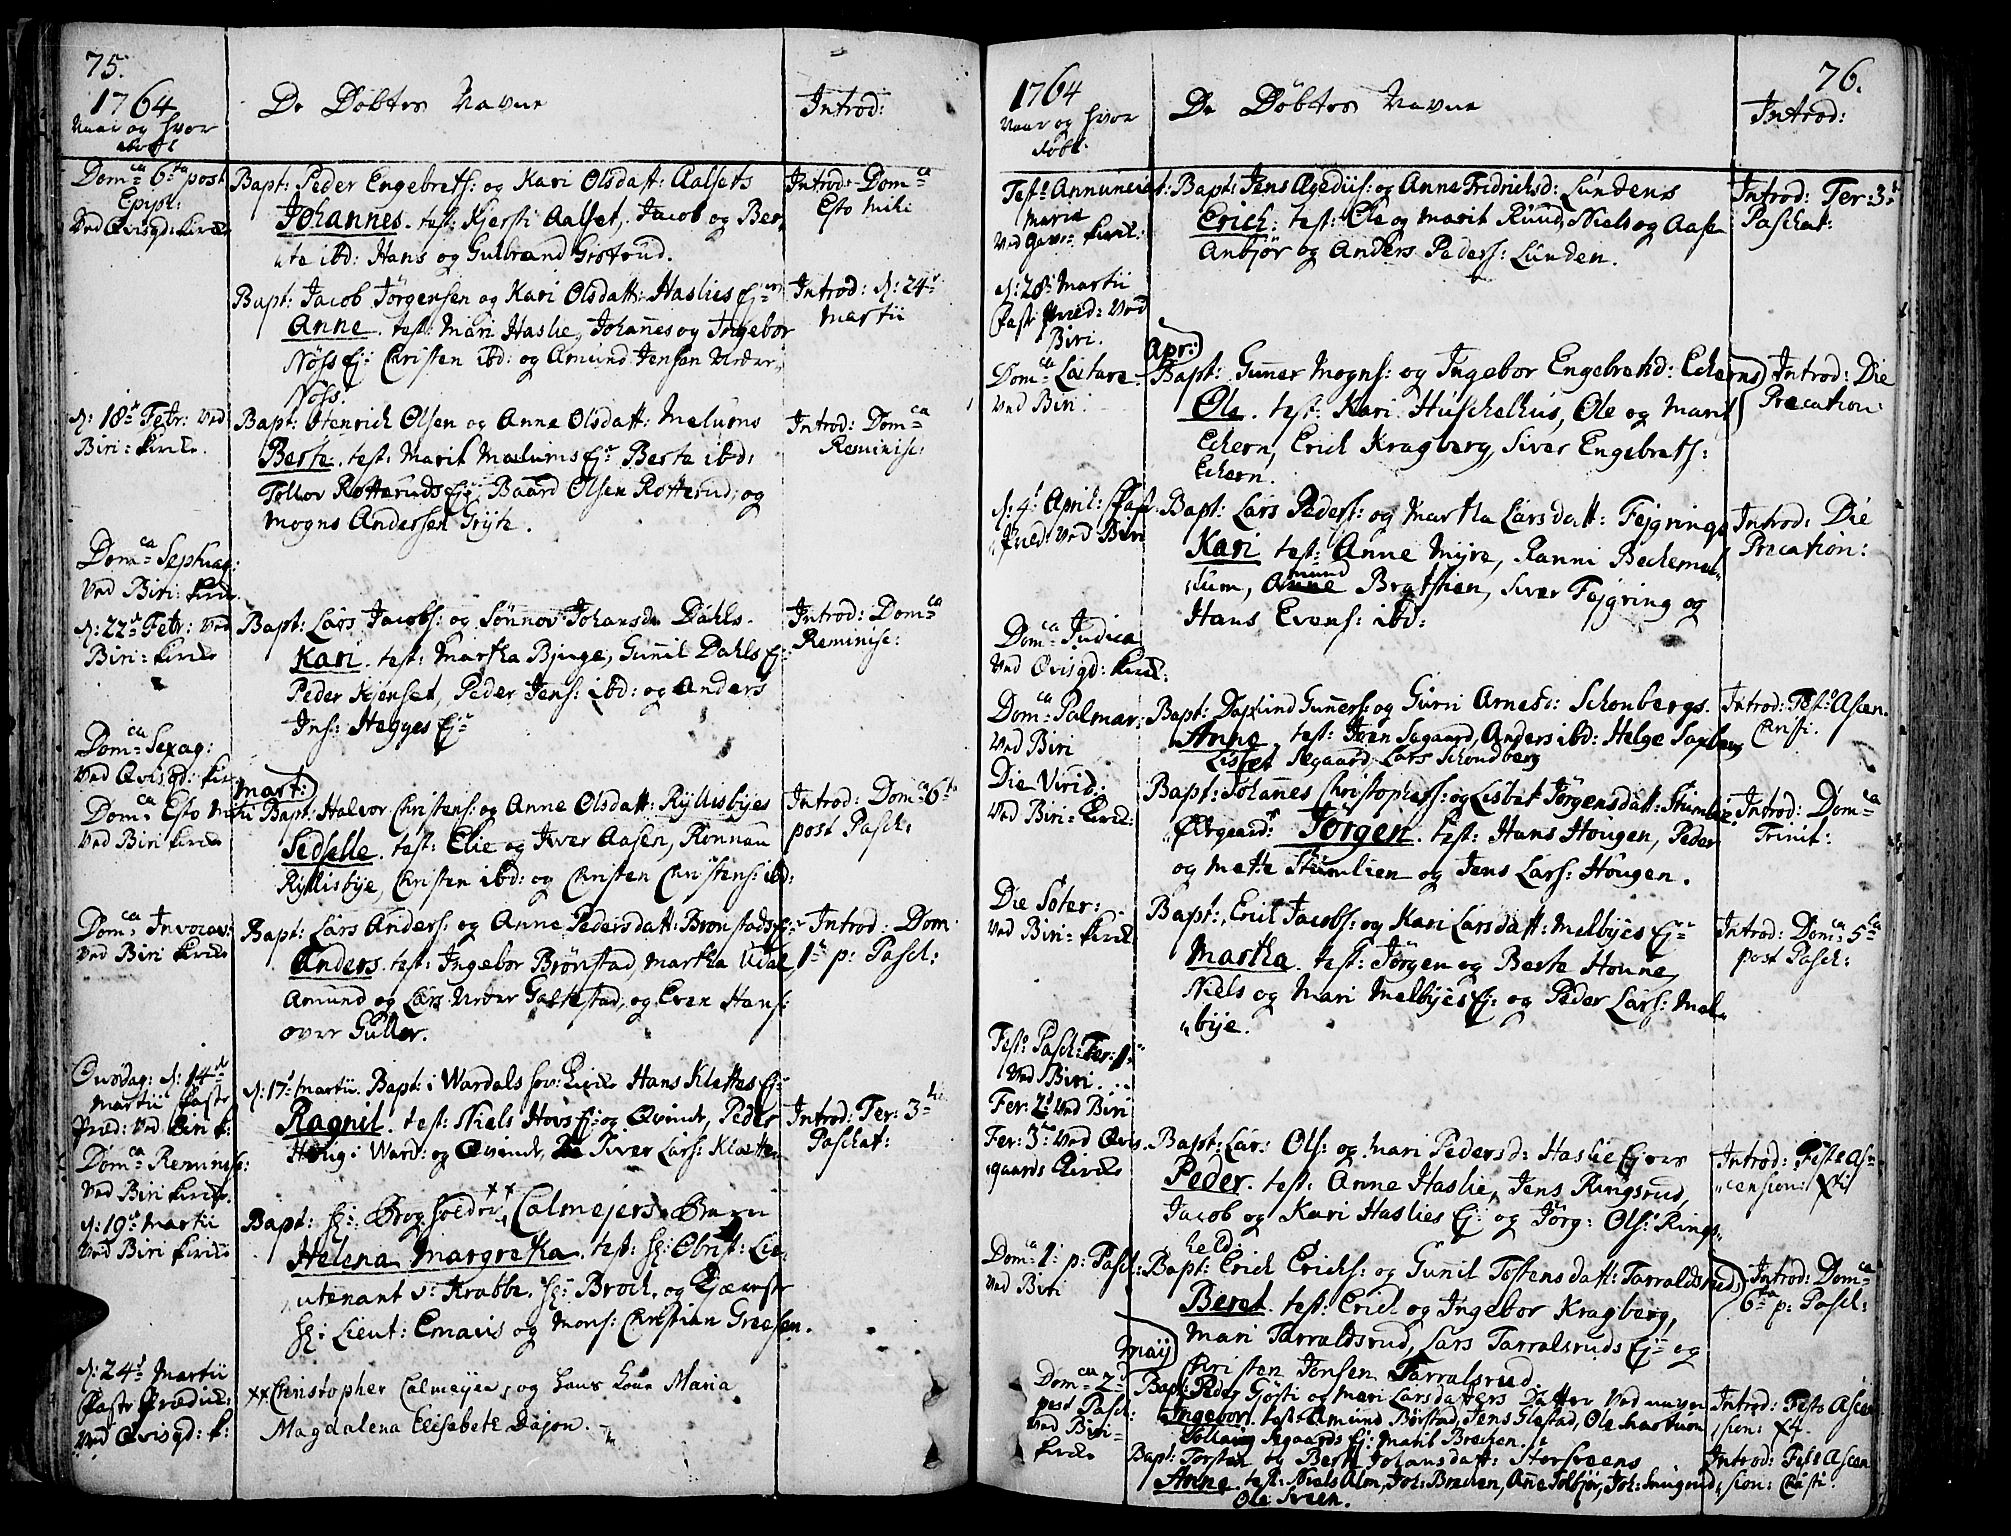 75.
1764
Naar og hvor
døbt
De Døbtes Navne
Introd:
Dom:ca 6:ta post
Epyph:
Ved Qvisgd: Kirke
Bapt: Peder Engebrets: og Kari Olsdatt: Aalsets
Johannes. test: Kjersti Aalset, Jacob og Ber„
„te ibd: Hans og Gulbrand Grøterud.
Introd: Dom:ca
Esto Mihi
Bapt: Jacob Jörgensen og Kari Olsdatt: Haslies Ej:
Anne. test: Mari Haslie, Johañes og Ingebor
Nöss Ej: Christen ibd: og Amund Jensen Under„
Nöss.
Introd: d: 24:
Martii
d: 18: Febr: Ved
Biri: Kirke.
Bapt: Henrich Olsen og Anne Olsdatt: Melums
Berte. test: Marit Melums Ej: Berte ibd:
Tollov Rotteruds Ej: Baard Olsen Rotterud, og
Mogns Andersen Gryte.
Introd: Dom:ca
Reminisc:
Dom:ca Septuag:
Ved Biri: Kirke.
d: 22: Febr: Ved
Biri: Kirke
Bapt: Lars Jacobs: og Sönnov Johansda Dahls.
Kari. test: Martha Bjuge, Guñil Dahls Ej:
Peder Kjenset, Peder Jens: ibd: og Anders
Jns: Hegges Ej:
Introd: Dom:ca
Reminisc:
Dom:ca Sexag:
Ved Qvisgd: Kirke
Mart:
Dom:ca Esto Mihi
Ved Biri Kirke
Bapt: Halvor Christens: og Anne Olsdatt: Ryllisbyes
Sedselle. test: Elie og Iver Aasen, Ronnau
Ryllisbye, Christen ibd: og Christen Christens: ibd:
Introd: Dom:ca 6:ta
post Pasch:
Dom:ca Invocav:
Ved Biri Kirke
Bapt: Lars Anders: og Anne Pedersdatt: Brønstads Ej:
Anders. test: Ingebor Brønstad, Martha
Amund og Lars Under, og Even Hans:
over Guller.
Introd: Dom:
1: p: Pasch:
Onsdag: d: 14:
Martii Faste
Præd: Ved Biri K:
d: 17: Martii. Bapt: i Wardals hov: Kirke Hans Klettes Ej:
Ragnil. test: Niels Hovs Ej: og Qvinde, Peder
Houg i Ward: og Qvinde, Iver Lars: Kletten
Introd: Fer: 3:
Paschat:
Dom:ca Reminisc:
Ved Biri Kirke.
d: 19: Martii
Ved Biri Kirke
Bapt: Hr: xx Calmejers Barn
Helena Margretha. test: Hr: Obrist: Lie„
„utenant v: Krabbe, Hr: Broch, og Kjæreste
Hr: Lieut: Emaus og Mons: Christian Greesen.
d: 24: Martii
Faste Prædik:
Ved Qvisgd: K:
xx Christopher Calmeyer, og hans Kone Maria
Magdalena Elisabeth Dajon.
76.
1764
Naar og hvor
døbt.
De Døbtes Navne
Introd:
Fest: Annunciat:
Mariæ
Ved Kirke:
Bapt: Jens Ægedius: og Anne Fridrichsd: Lundens
Erich: test: Ole og Marit Ruud, Niels og Aase
Anbjör og Anders Peders: Lunden.
Introd: Fer: 3:
Paschat:
d: 28: Martii
Faste Præd: Ved
Biri.
Apr:
Dom:ca Lætare
Ved Biri.
Bapt: Guñer Mogns: og Ingebor Engebretsd: Echerns
Ole. test: Kari Huschelhus, Ole og Marit
Echern, Erich Kragberg, Siver Engebrets:
Echern.
Introd: Die
Precation:
d: 4: April: Faste
Præd: Ved Biri
Bapt: Lars Peders: og Martha Larsdatt: Fejrings
Kari test: Anne Myre, Ranni Bechemel„
„lum, Amund Bratthien, Siver Fejgring og
Hans Evens: ibd:
Introd: Die
Precation:
Dom:ca Judica
Ved Qvisgd: Kirke:
Dom:ca Palmar:
Ved Biri
Bapt: Guñers: og Guri Arnesd: Schonbergs.
Anne. test: Joen Sagaard, Anders ibd: Helge Saxberg
Lisbet Segaard, Lars Schondberg
Introd: Fest: Ascen.
Christi.
Die Virid:
Ved Biri: Kirke:
Bapt: Johañes Christophers: og Lisbet Jörgensdatt: Stumlie:
Ødegaard: Jörgen. test: Hans Hougen, Peder
og Mette Stumlien og Jens Lars: Hougen.
Introd: Dom:ca
Trinit:
Die Soter:
Ved Biri: Kirke
Bapt: Eric Jacobs: og Kari Larsdatt: Melbyes Ej:
Martha. test: Jörgen og Berte Honne,
Niels og Mari Melbyes Ej: og Peder Lars: Mel„
„bye.
Introd: Dom:ca 5:ta
post Pasch:
Fest: Pasch: Fer: 1:
Ved Biri.
Fer: 2: Ved Biri
Fer: 3: Ved Qvis„
„gaards Kirke
Bapt: Lar: Ols: og Mari Pedersd: Haslie Ejers
Peder. test: Anne Haslie, Jens Ringsrud,
Jacob og Kari Haslies Ej: og Jörg: Ols: Rings„
held:
Introd: Festo As„
„cension: Xti
Dom:ca 1: p: Pasch:
Ved Biri
Bapt: Erich Erichs: og Guñil Tostensdatt: Tarraldsrud
Beret. test: Erich og Ingebor Kragberg,
Mari Tarraldsrud, Lars Tarralsruds Ej: og
Christen Jonsen Tarralsrud.
Introd: Dom:ca
6:ta p: Pasch:
Maij
Dom:ca 2:
post Pasch:
Ved Biri
Kirke
Bapt: Peder Gjösti og Mari Larsdatters Datter Ved navn
Ingebor. test: Amund Börstad, Jens Glestad, Ole Martum
Segaards Ej: Marit Brechen.
Introd: Festo Ascen„
„sion: Xti.
Bapt: Torsten og Berte Johansdatt: Storsveens
Anne. test: Niels Alm, Joh: Brechen, Añe Tolbjør, Joh: Smugrud
Ole Sveen.
Introd: Festo Ascen
„sion: Christi.